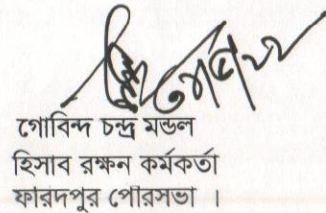 গোবিন্দ চন্দ্র মন্ডল
হিসাব রক্ষন কর্মকর্তা
ফারদপুর পৌরসভা ।